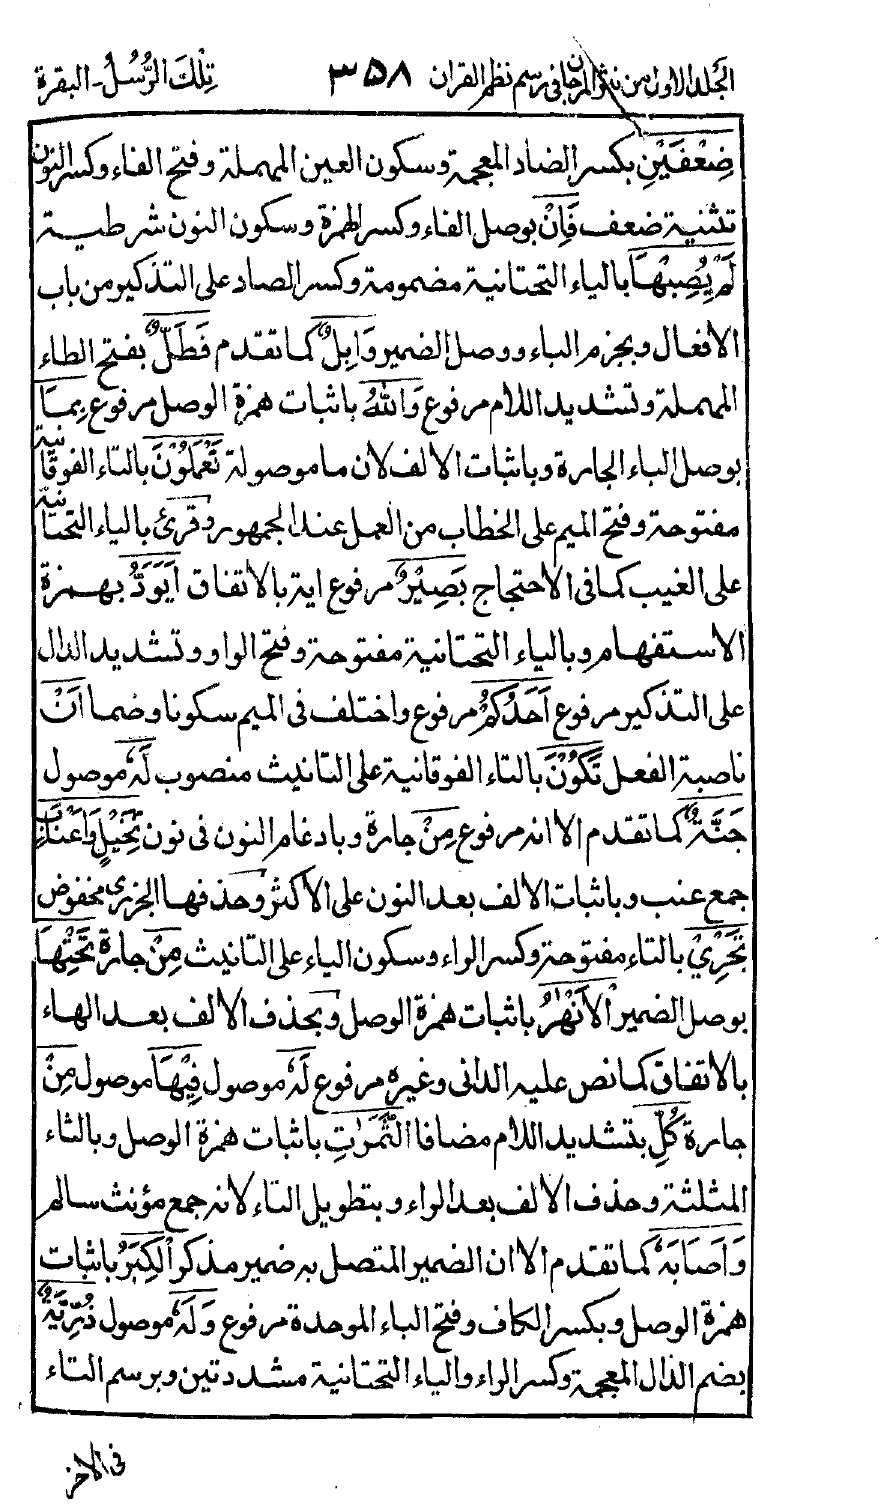 الجلد الاول من نثر المرجان فی رسم نظم القران ۳۵۸ تِلْكَ الرُّسُلُ - البقرة
ضِعْفَيْنِ بكسر الضاد المعجمة وسكون العين المهملة وفتح الفاء وكسر النون
تثنية ضعف فَاِنْ بوصل الفاء وكسر الهمزة وسكون النون شرطية
لَمْ يُصِبْهَا بالياء التحتانية مضمومة وكسر الصاد على التذكير من باب
الافعال وبجزم الباء ووصل الضمير وَابِلٌ كما تقدم فَطَلٌّ بفتح الطاء
المهملة وتشديد اللام مرفوع وَاللّٰهُ باثبات همزة الوصل مرفوع بِمَا
بوصل الباء الجارة وباثبات الالف لان ما موصولة تَعْمَلُوْنَ بالتاء الفوقانية
مفتوحة وفتح الميم على الخطاب من العمل عند الجمهور وقرئ بالياء التحتانية
على الغيب كما فى الاحتجاج بَصِيْرٌ مرفوع اية بالاتفاق اَيَوَدُّ بهمزة
الاستفهام وبالياء التحتانية مفتوحة وفتح الواو وتشديد الدال
على التذكير مرفوع اَحَدُكُمْ مرفوع واختلف فى الميم سكونا وضما اَنْ
ناصبة الفعل تَكُوْنَ بالتاء الفوقانية على التانيث منصوب لَهٗ موصول
جَنَّةٌ كما تقدم الا انه مرفوع مِنْ جارة وبادغام النون فى نون نَخِيْلٍ وَاَعْنَابٍ
جمع عنب وباثبات الالف بعد النون على الاكثر وحذفها الجزرى مخفوض
تَجْرِيْ بالتاء مفتوحة وكسر الراء وسكون الياء على التانيث مِنْ جارة تَحْتِهَا
بوصل الضمير الْاَنْهٰرُ باثبات همزة الوصل وبحذف الالف بعد الهاء
بالاتفاق كما نص عليه الدانى وغيره مرفوع لَهٗ موصول فِيْهَا موصول مِنْ
جارة كُلِّ بتشديد اللام مضافا الثَّمَرٰتِ باثبات همزة الوصل وبالثاء
المثلثة وحذف الالف بعد الراء وبتطويل التاء لانه جمع مؤنث سالم
وَاَصَابَهٗ كما تقدم الا ان الضمير المتصل به ضمير مذكر الْكِبَرُ باثبات
همزة الوصل وبكسر الكاف وفتح الباء الموحدة مرفوع وَلَهٗ موصول ذُرِّيَّةٌ
بضم الذال المعجمة وكسر الراء والياء التحتانية مشددتين وبرسم التاء
فى الاخر